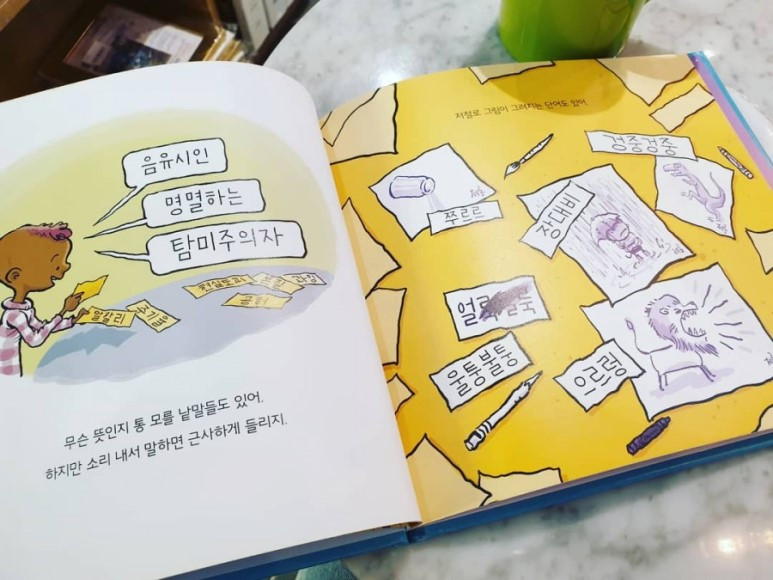 음유시인
명멸하는
탐미주의자
알갈리
무슨 뜻인지 통 모를 낱말들도 있어.
하지만 소리 내서 말하면 근사하게 들리지.
저절로 그림이 그려지는 단어도 있어.
겅중겅중
쭈르르
장대비
울퉁불퉁
으르렁